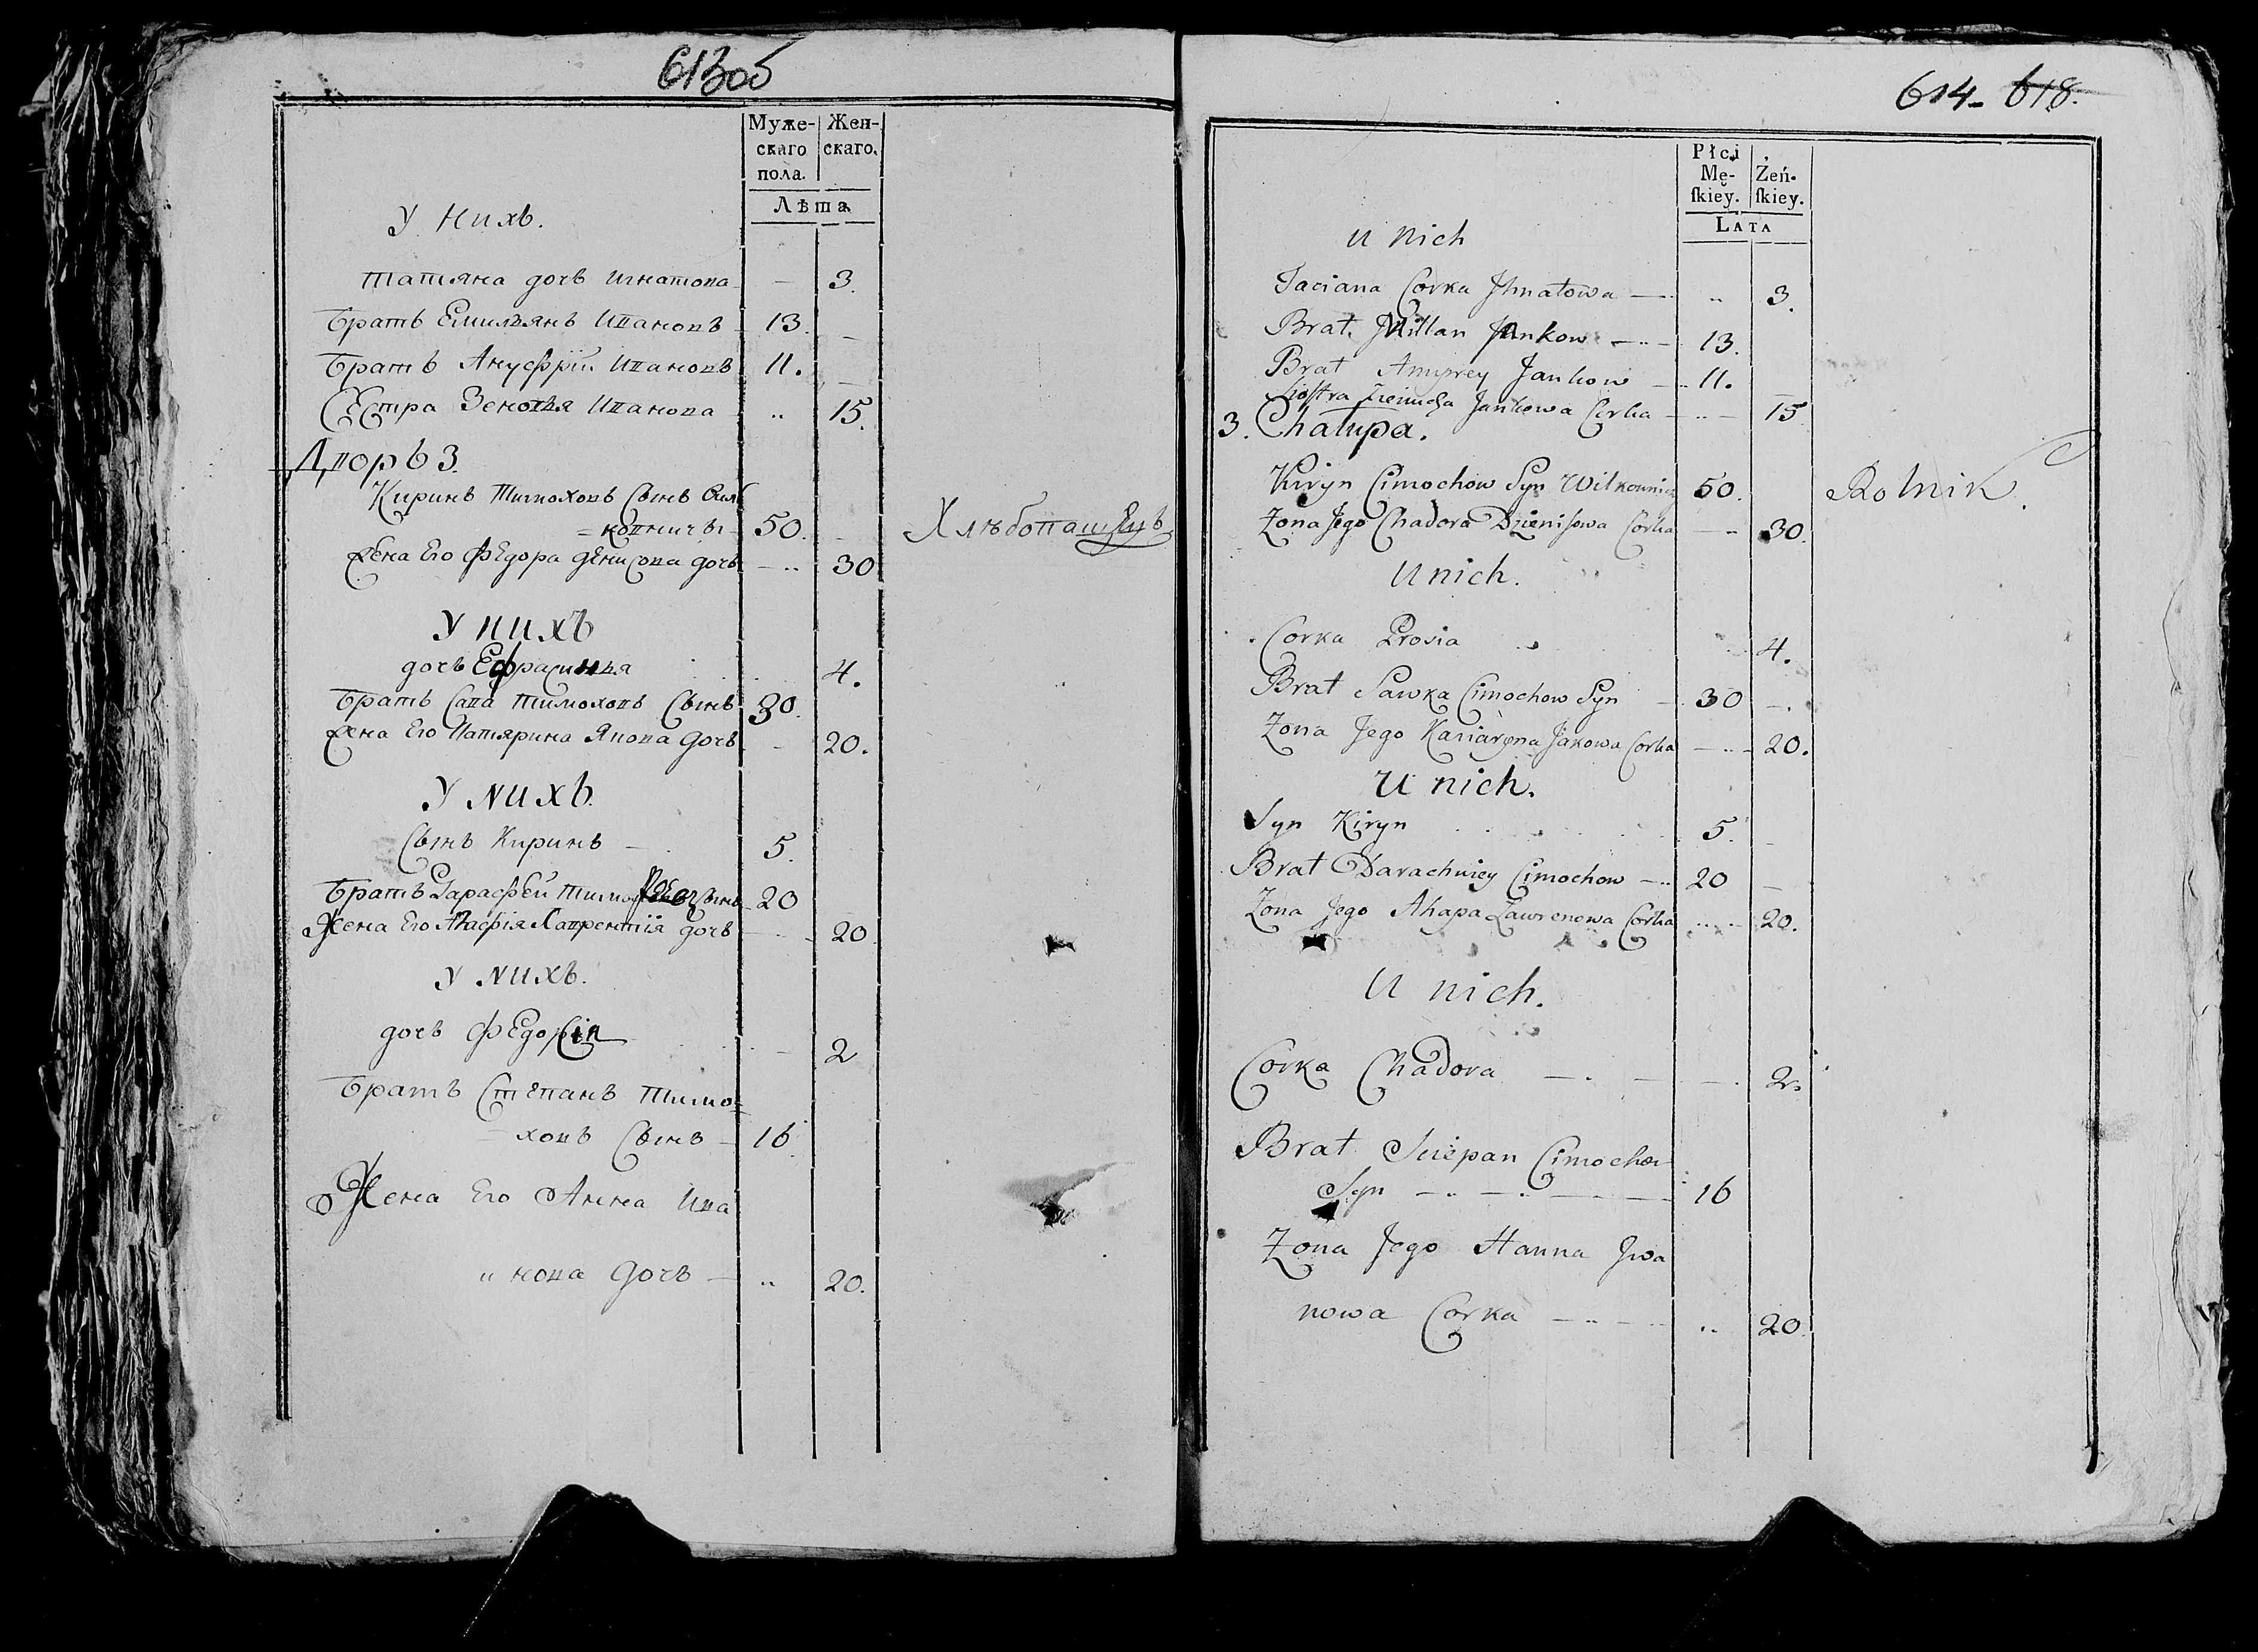 613об
Муже- Жен-
скаго скаго.
пола.
Лѣта
У Нихъ.
Татяна дочь Игнатова — 3.
Братъ Емильянъ Ивановъ 13. —
Братъ Анусфрій Ивановъ 11. —
Сестра Зеновья Иванова .. 15.
Дворъ 3.
Киринъ Тимоховъ Сынъ Вил
= ковничъ 50. — Хлѣбопашецъ
Жена Его Федора Денисова дочь — .. 30
У нихъ
дочь Ефрасинья 4.
Братъ Сава Тимоховъ Сынъ 30.
Жена Его Катярина Якова дочь — 20.
У нихъ.
Сынъ Киринъ — 5.
Братъ Дарафей 20
Жена Его Агафія Лаврентія дочь — 20
У нихъ.
дочь — 2
Братъ Степанъ Тимо=
= ховъ Сынъ — 16.
Жена Его Анна Ива
" нова дочь — .. 20.
614- 618.
Płci
Mę- Żeń-
skiey. skiey.
LATA
U Nich
Taciana Corka Jhnatowa — .. 3.
Brat. Millan Jankow — .. — 13.
Brat Jankow — .. 11. —
Siostra Jankowa Corka — .. — 15
3. Chałupa.
Kiryn Cimochow Syn Wilkownicz 50. Rolnik
Zona Jego Chadora Dzienisowa Corka — .. 30.
U nich.
Corka Prosia .. 4.
Brat Sawka Cimochow Syn — 30 —.
Zona Jego Kaciaryna Jakowa Corka — .. — 20.
U nich.
Syn Kiryn 5. —
Brat Darachwiey Cimochow — .. 20 —
Zona Jego Ahapa Lawrenowa Corka .. .. — 20.
U nich.
Corka Chadora — . — — . 2.
Brat Sciepan Cimochow
Syn — .. — .. — . — — 16
Zona Jego Hanna Jwa
nowa Corka — .. — .. .. 20.